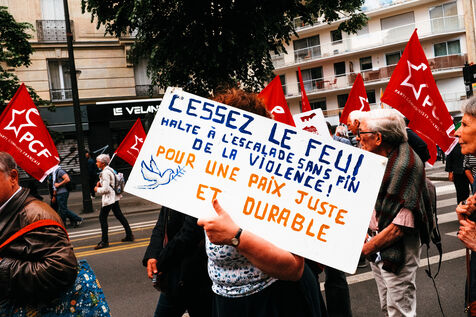 LE VELAN
PCF
PCF
PCF
PCF
L'CESSEZ LE FEU!
HALTE À L'ESCALADE SANS FIN
DE LA VIOLENCE!
POUR UNE PAIX JUSTE
ET DURABLE